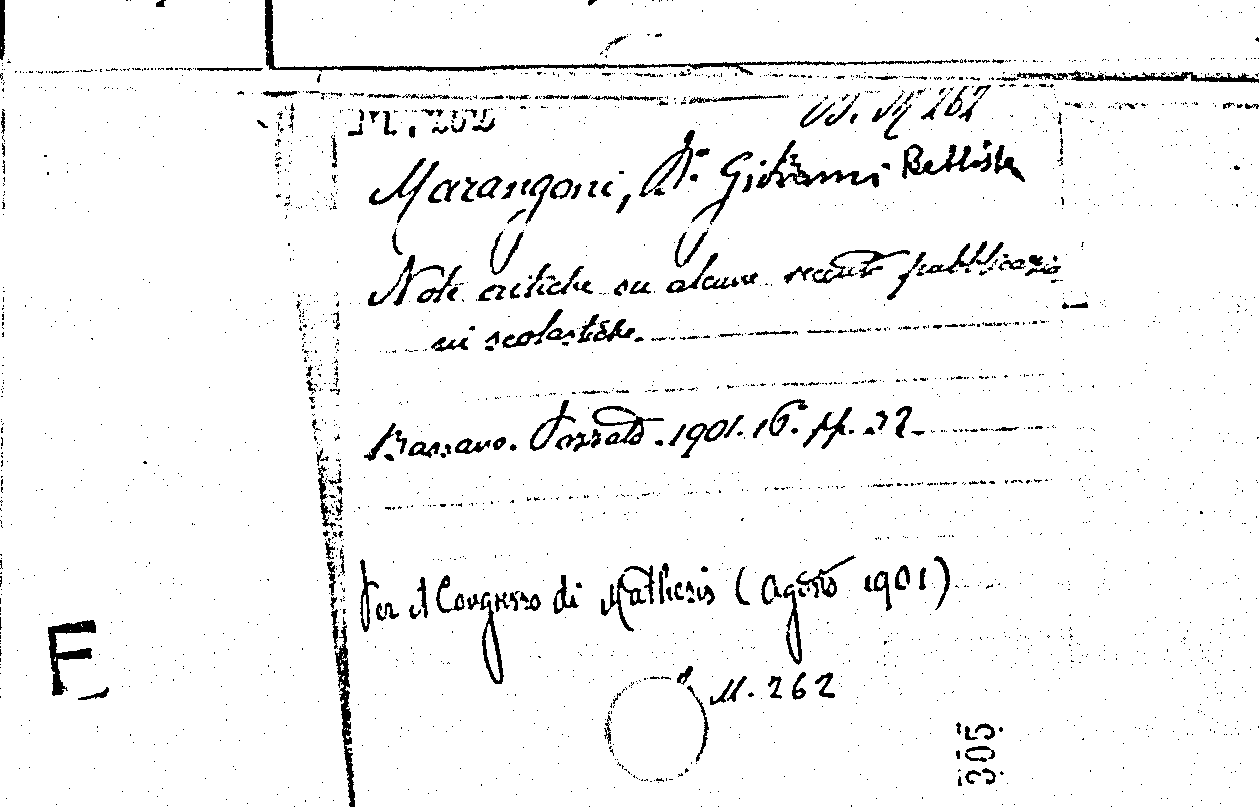 M. 262
M 262
Marangoni, Dr. Giovanni Battista
Note critiche su alcune recenti pubblicazio
ni scolastiche.
Bassano. Pozzato. 1901. 16°. pp. 32.
Per il Congresso di Mathesis (Agosto 1901)
M. 262
E
305